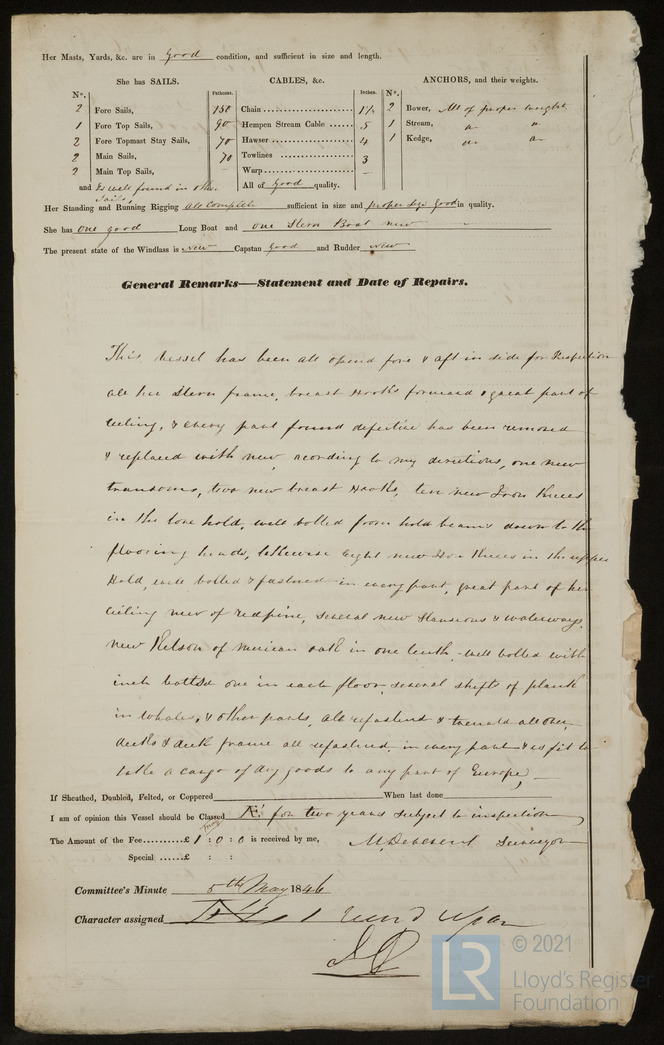 Her Masts, Yards, &c. are in Good condition, and sufficient in size and length.
She has SAILS. CABLES, &c. ANCHORS, and their weights.
N°. Fathoms. Inches. N°.
2 Fore Sails, 150 Chain 1 1/8 2 Bower, All of proper weight
1 Fore Top Sails, 90 Hempen Stream Cable 5 1 Stream, do "
2 Fore Topmast Stay Sails, 70 Hawser 4 1 Kedge, do do
2 Main Sails, 70 Towlines 3
2 Main Top Sails, — Warp —
and is well found in other sails, All of Good quality.
Her Standing and Running Rigging all complete sufficient in size and proper size good in quality.
She has one good Long Boat and one Stern Boat new
The present state of the Windlass is New Capstan Good and Rudder New
General Remarks—Statement and Date of Repairs.
This vessel has been all opend fore & aft in side for Inspection
all her Stern frame, breast Hooks forward & great part of
Ceiling, & every part found defective has been removed
& replaced with new, acording to my directions, one new
transoms, two new breast Hooks, ten new Iron Knees
in the lore hold, well bolted from hold beams down to the
flooring heads, likewise eight new Iron Knees in the upper
Hold, well bolted & fastned in every part, great part of her
ceiling new of redpine, several new Stansions & waterways,
new Kelson of merican oak in one lenth, well bolted with
inch bolts one in each floor, several shifts of plank
in whales, & other parts, all refastend & trenald all over,
decks & deck frame all refastend in every part & is fit to
take a cargo of dry goods to any part of Europe,
If Sheathed, Doubled, Felted, or Coppered When last done
I am of opinion this Vessel should be Classed Æ1 for two years subject to inspection
The Amount of the Fee £ 1 : 0 : 0 is received by me, Surveyor
Special £ : :
Committee's Minute 5th May 1846
Character assigned
© 2021
LR
Lloyd's Register
Foundation